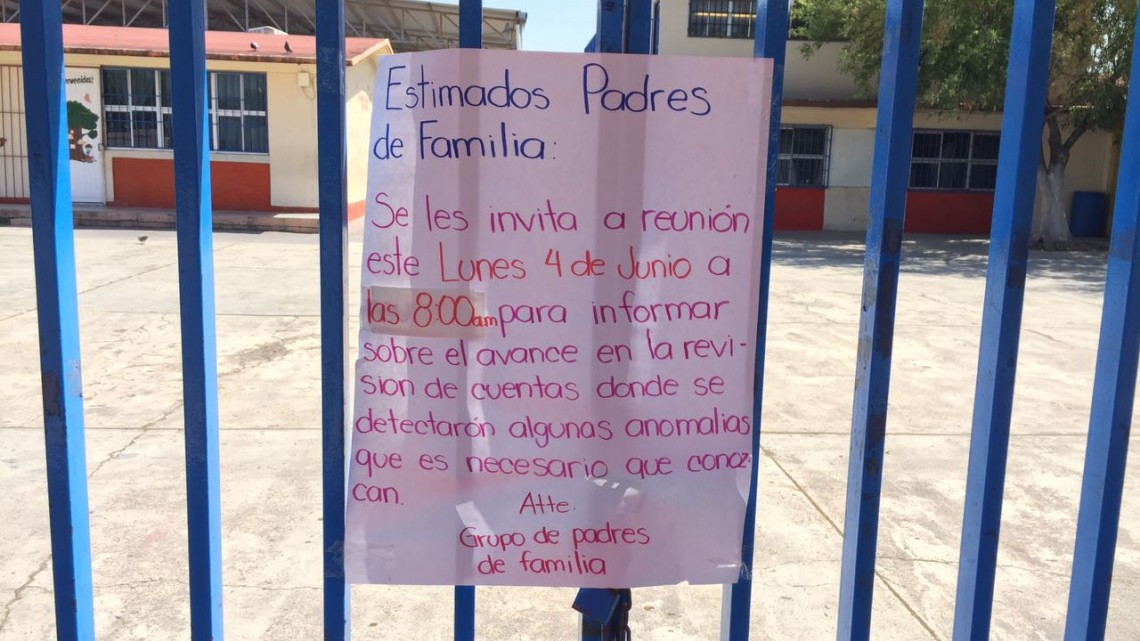 Bienvenidos!
Estimados Padres
de Familia:
Se les invita a reunión
este Lunes 4 de Junio a
las 8:00am para informar
sobre el avance en la revi-
sion de cuentas donde se
detectarón algunas anomalias
que es necesario que conoz-
can.
Atte.
Grupo de padres
de familia